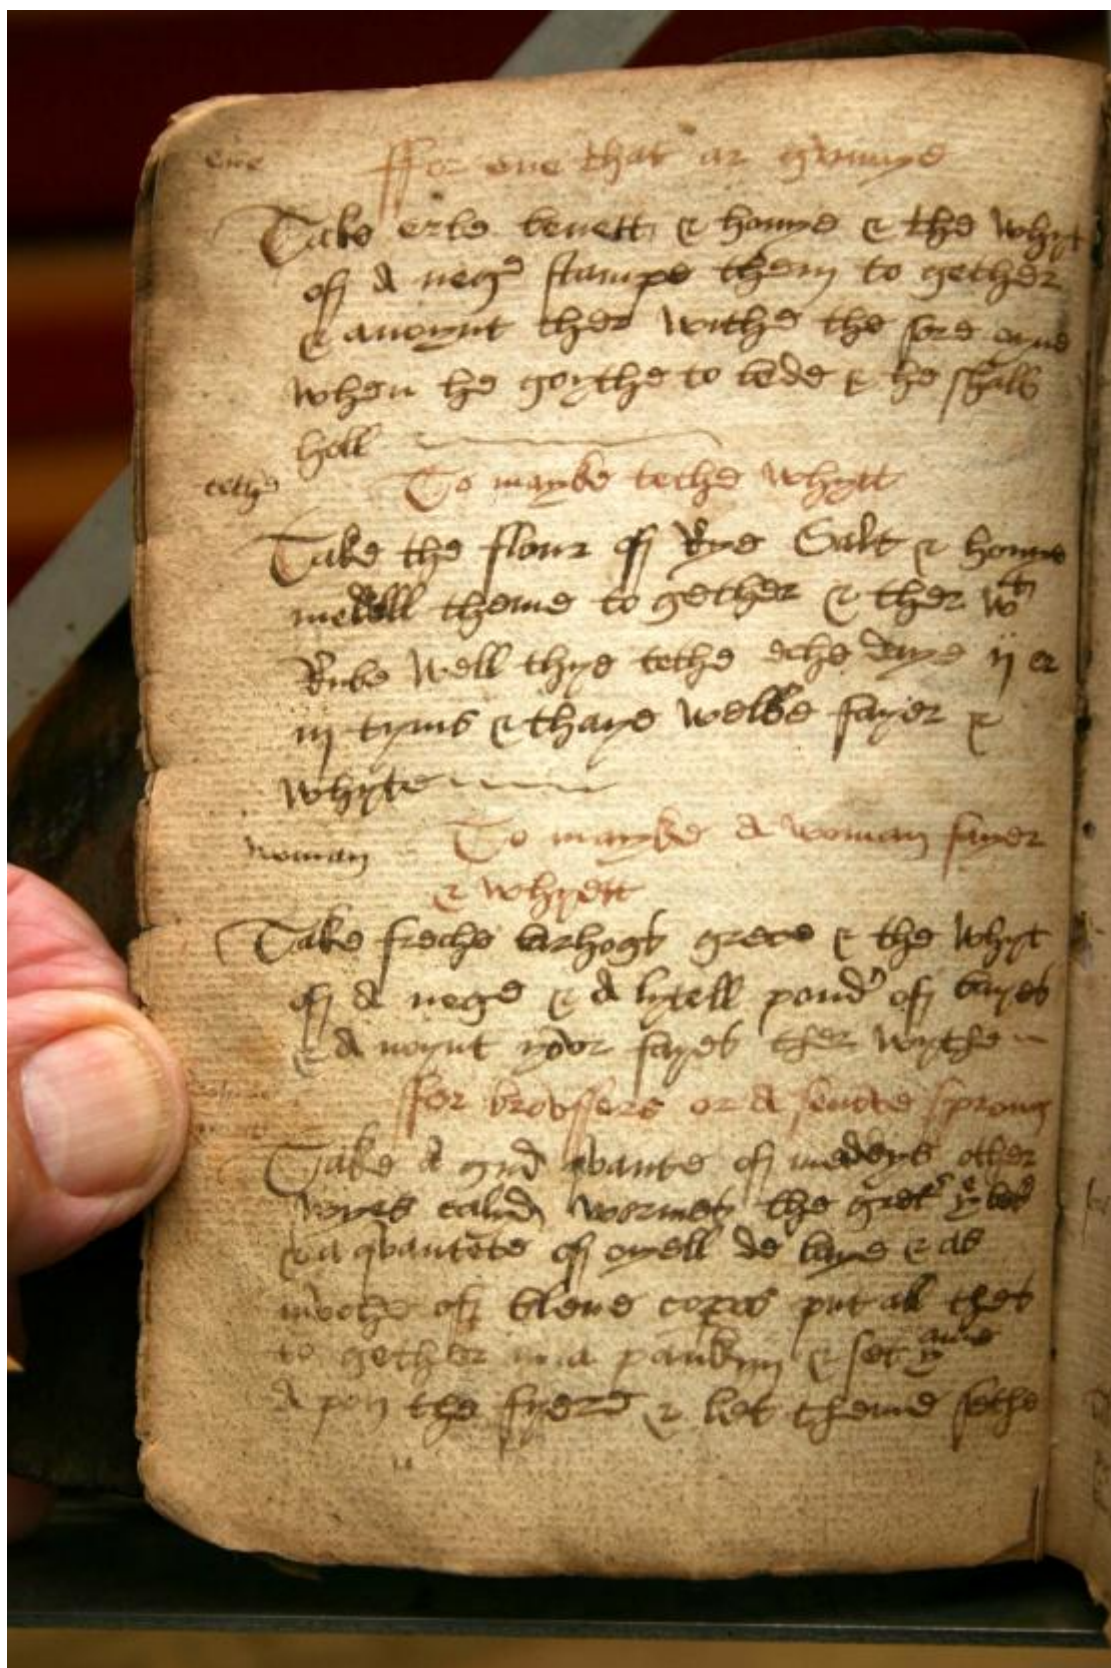 ene
ffor ene that ar
Take erbe benett & honye & the whyt
off A neg stampe them to gether
& anoynt ther withe the sore eyne
when he goythe to bede & he shall
hell
tethe
To mayke tethe whytt
Take the flour off Rye Salt & honye
mell theme to gether & ther wt
Rube well thye tethe eche daye ij er
iij tyms & thaye welbe fayer &
whyte
woman
To mayke A woman fayer
& whyett
Take freche barhogs grece & the whyt
off A nege & A lytell poudr off bayes
& A noynt yor fayes ther wythe
ffor or A sprong
Take A gud quante off other
wyes calud the gret ye bet
& a quantete off oyell de baye & as
moche off put all thes
to gether in a pankyn & set
A pon the fyere & let theme sethe